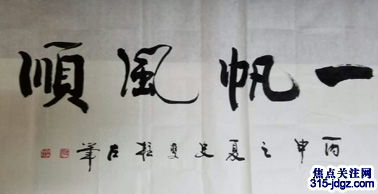 一帆風順
丙申之夏史雙拴左筆
焦点关注网
315-jdgz.com